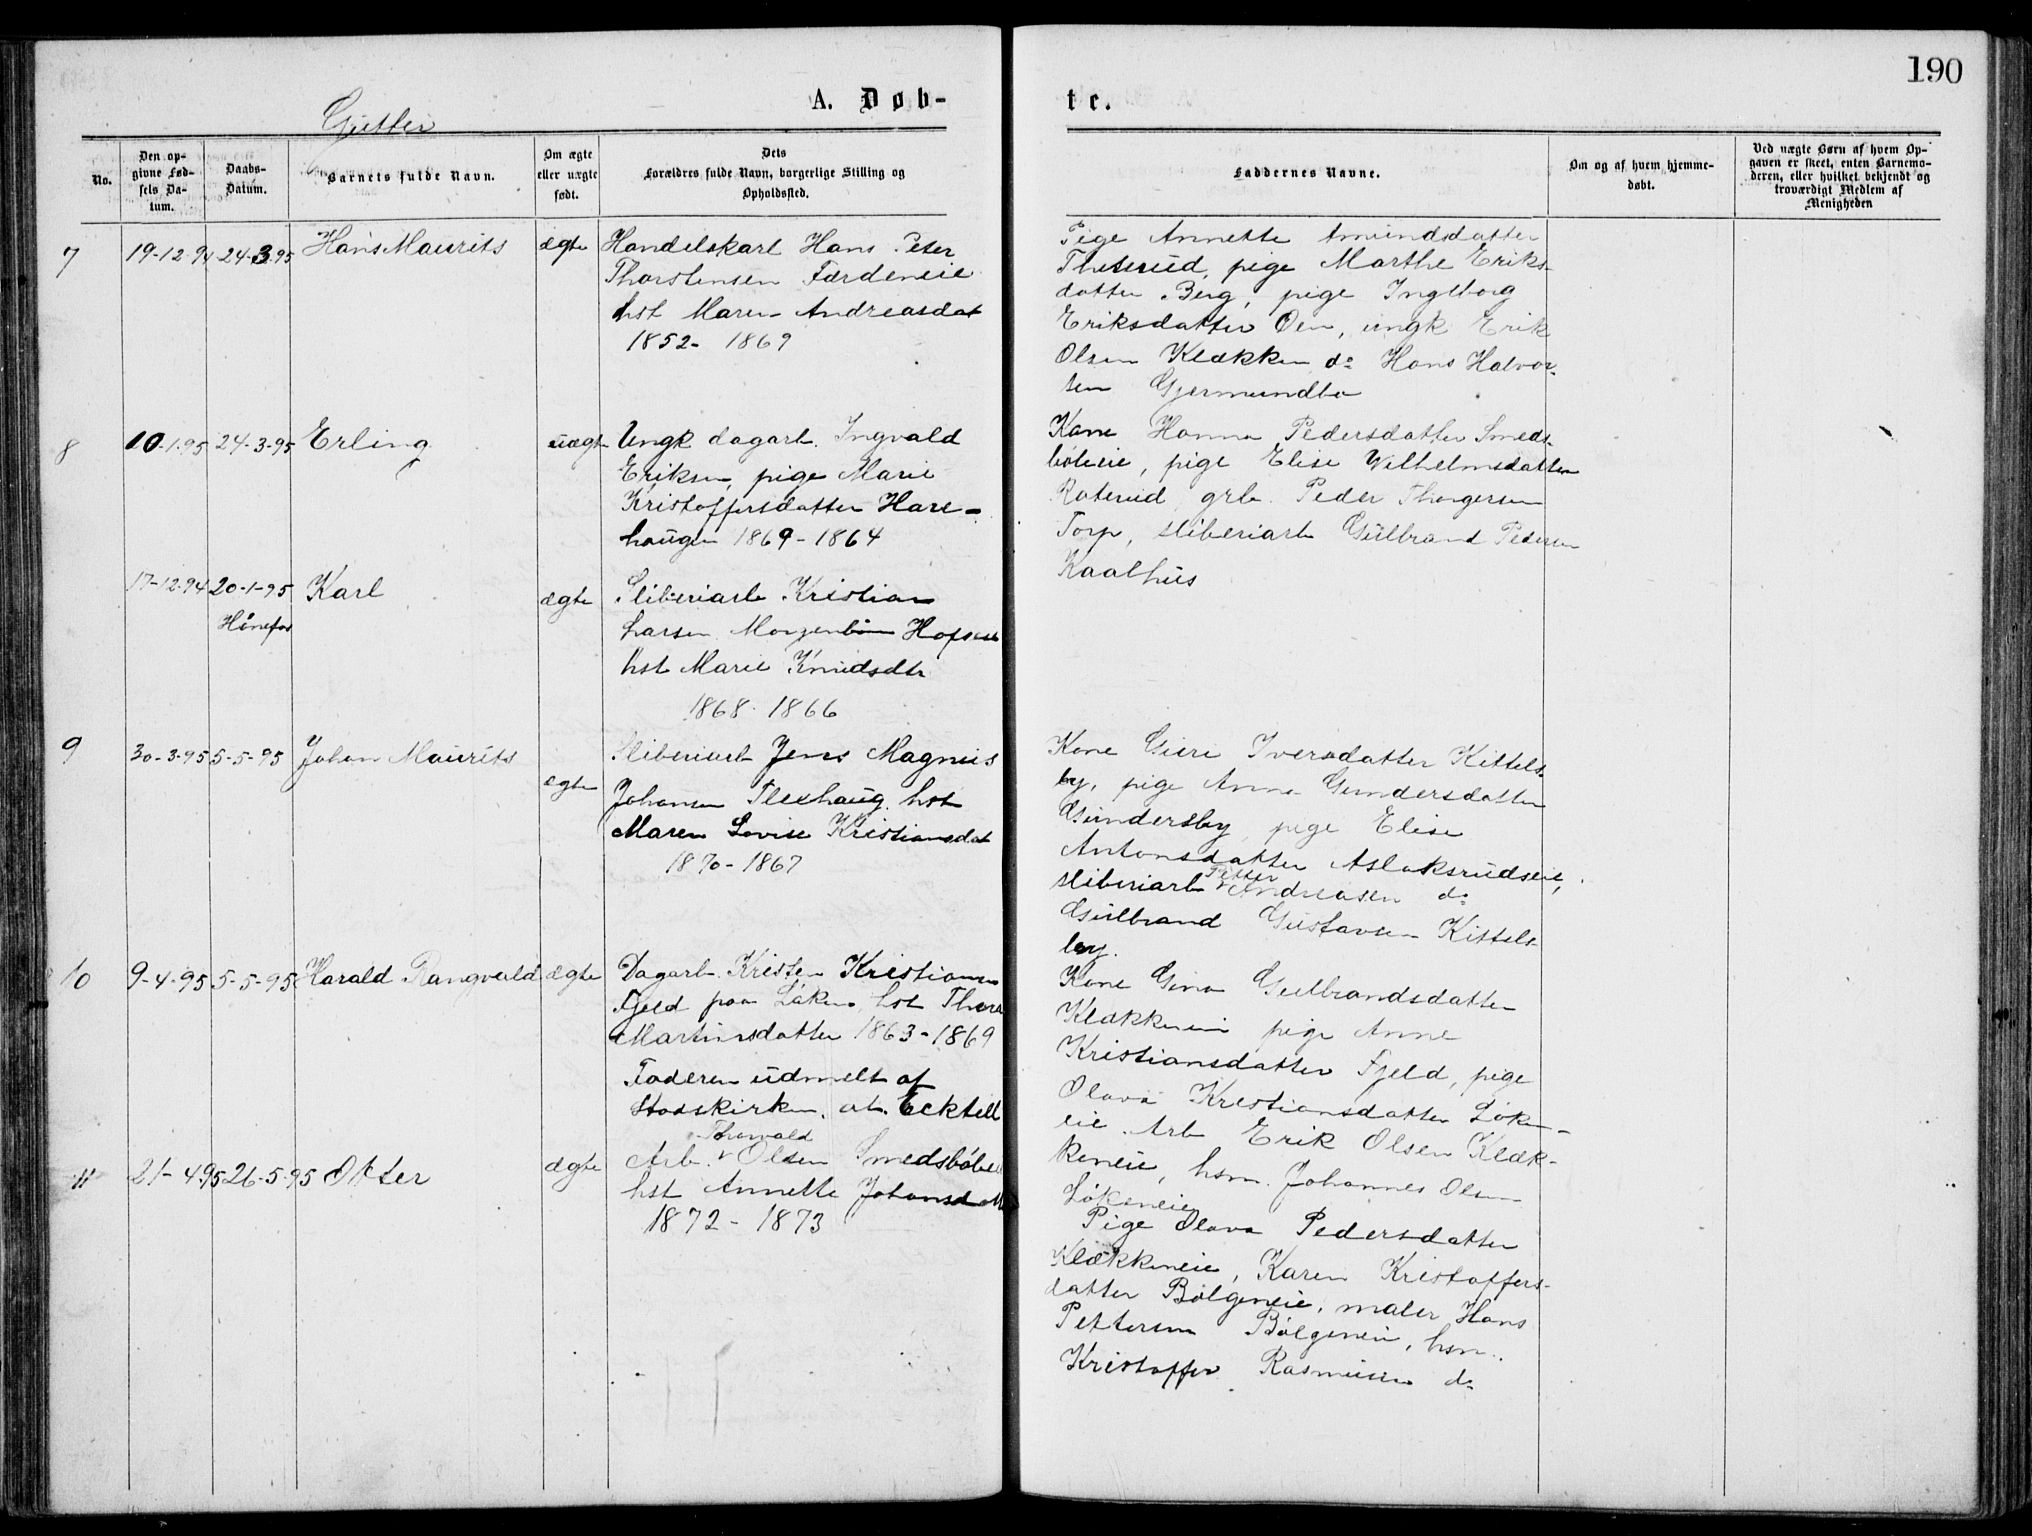 190
A. Døb-
te.
Gutter
No.
Den op-
givne Fød-
sels Da-
tum.
Daabs-
Datum.
Barnets fulde Navn.
Om ægte
eller uægte
født.
Dets
Forældres fulde Navn, borgerlige Stilling og
Opholdssted.
Faddernes Navne.
Om og af hvem hjemme-
døbt.
Ved uægte Børn af hvem Op-
gaven er skeet, enten Barnemo-
deren, eller hvilket bekjendt og
troværdigt Medlem af
Menigheden
7 19-12-94 24-3-95 Hans Maurits ægte
Handelskarl Hans Peter
Thorstensen Færdeneie
hst Maren Andreasdat
1852- 1869
Pige Annette Amundsdatter
pige Marthe Eriks-
datter Berg, pige Ingeborg
Eriksdatter Oen, ungk Erik
Olsen Klækken do Hans Halvor-
sen Gjermundbo
8 10-1-95 24-3-95 Erling uægte
Ungk dagarb. Ingvald
Eriksen, pige Marie
Kristoffersdatter Hare-
haugen 1869-1864
Kone Hanna Pedersdatter Smeds-
böleie, pige Elise Wilhelmsdatter
Raterud grb. Peder Thorgersen
Torp, sliberiarb Gulbrand Pedersen
Kaalhus
17-12-94 20-1-95 Karl ægte
Hönefos
Sliberiarb Kristian
Larsen Hofs
hst Marie Knudsdtr
1868 1866
9 30-3-95 5-5-95 Johan Maurits
ægte
Sliberiarb Jens Magnus
Johansen Flexhaug. hst
Maren Lovise Kristiansdat
1870-1867
Kone Guri Iversdatter Kittels-
by, pige Anna Gundersdatter
Gundersby, pige Elise
Antonsdatter Aslaksrudseie,
Petter
sliberiarb Andreasen do
Gulbrand Gustavsen Kittels-
by.
10 9-4-95 5-5-95 Harald Rangvald ægte
Dagarb. Kristen Kristiansen
Fjeld paa Löken, hst Thora
Martinsdatter 1863-1869
Faderen udmelt af
Statskirken,
Kone Gina Gulbrandsdatter
Klækkeneie pige Anne
Kristiansdatter Fjeld, pige
Olava Kristiansdatter Löken-
eie. Arb Erik Olsen Klæk-
keneie, hsm. Johannes Olsen
Lökeneie
11 21-4-95 26-5-95 Otter ægte
Thorvald
Arb. Olsen Smedsböleie
hst Annette Johansd
1872-1873
Pige Olava Pedersdatter
Klækkeneie, Karen Kristoffers-
datter Bölgeneie, maler Hans
Pettersen Bölgeneie, hsm.
Kristoffer Rasmusen do